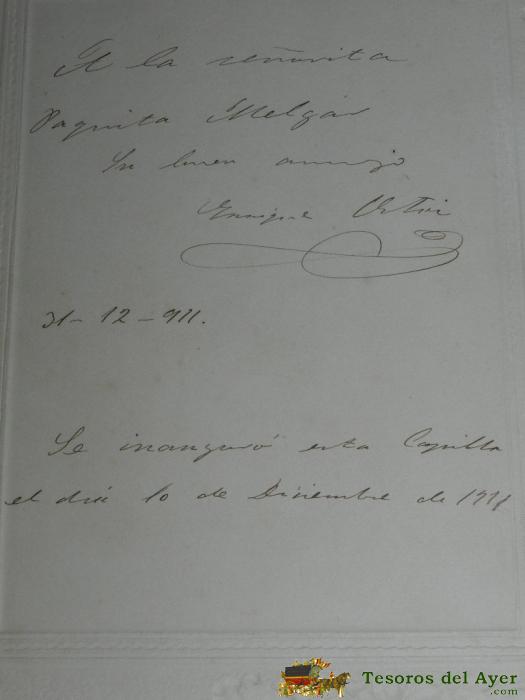 A la señorita
Paquita Melgár
Su buen amigo
Enrique
31-12-911.
Se inauguró esta Capilla
el dia 10 de Diciembre de 1911
Tesoros del Ayer
.com